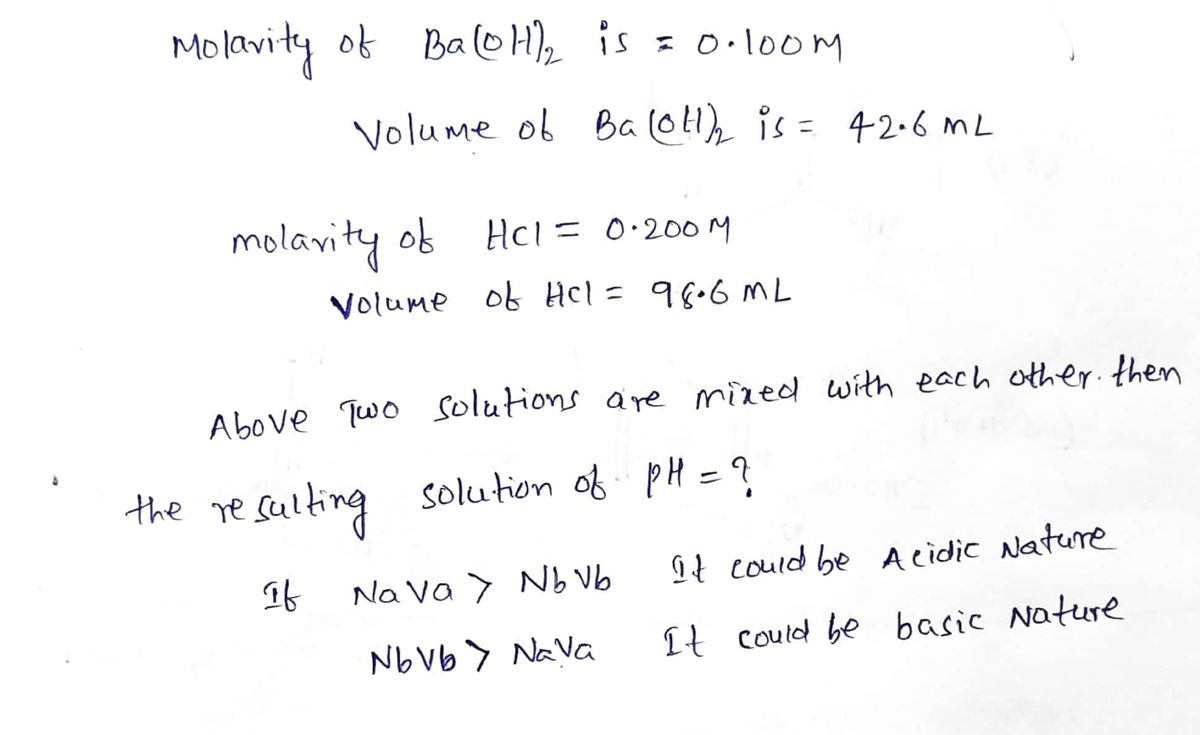 Molarity of Ba(OH)₂ is = 0.100M
Volume of Ba(OH)₂ is = 42.6 mL
molarity of HCl = 0.200 M
Volume of HCl = 98.6 mL
Above Two solutions are mixed with each other. then
the resulting solution of pH = ?
If NaVa > NbVb It could be Acidic Nature
NbVb > NaVa It could be basic Nature